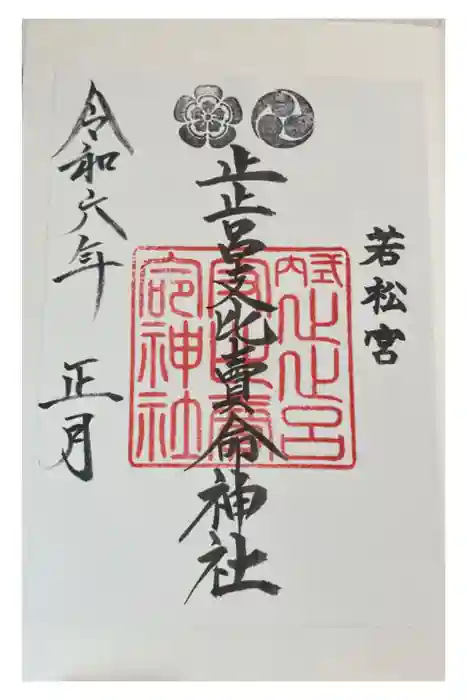 若松宮
止止呂支比賣命神社
式内止止呂
命神社
令和六年 正月